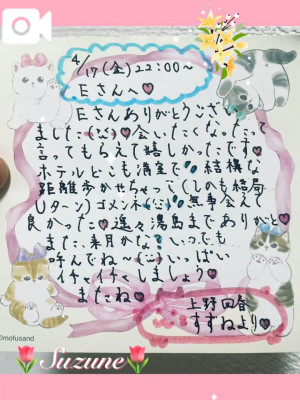 4/17(金)22:00〜
Eさんへ♥
Eさんありがとうござい
ました(^^)♥会いたくなったって
言ってもらえて嬉しかったです♥
ホテルどこも満室で💦結構な
距離歩かせちゃって(しかも結局
Uターン)ゴメンネ💦無事会えて
良かった♥遥々湯島までありがと♥
また、来月かな?いつでも
呼んでね〜(^^)いっぱい
イチャイチャしましょう♥
またね♥
上野回春
すずねより♥
©mofusand
🌷Suzune🌷